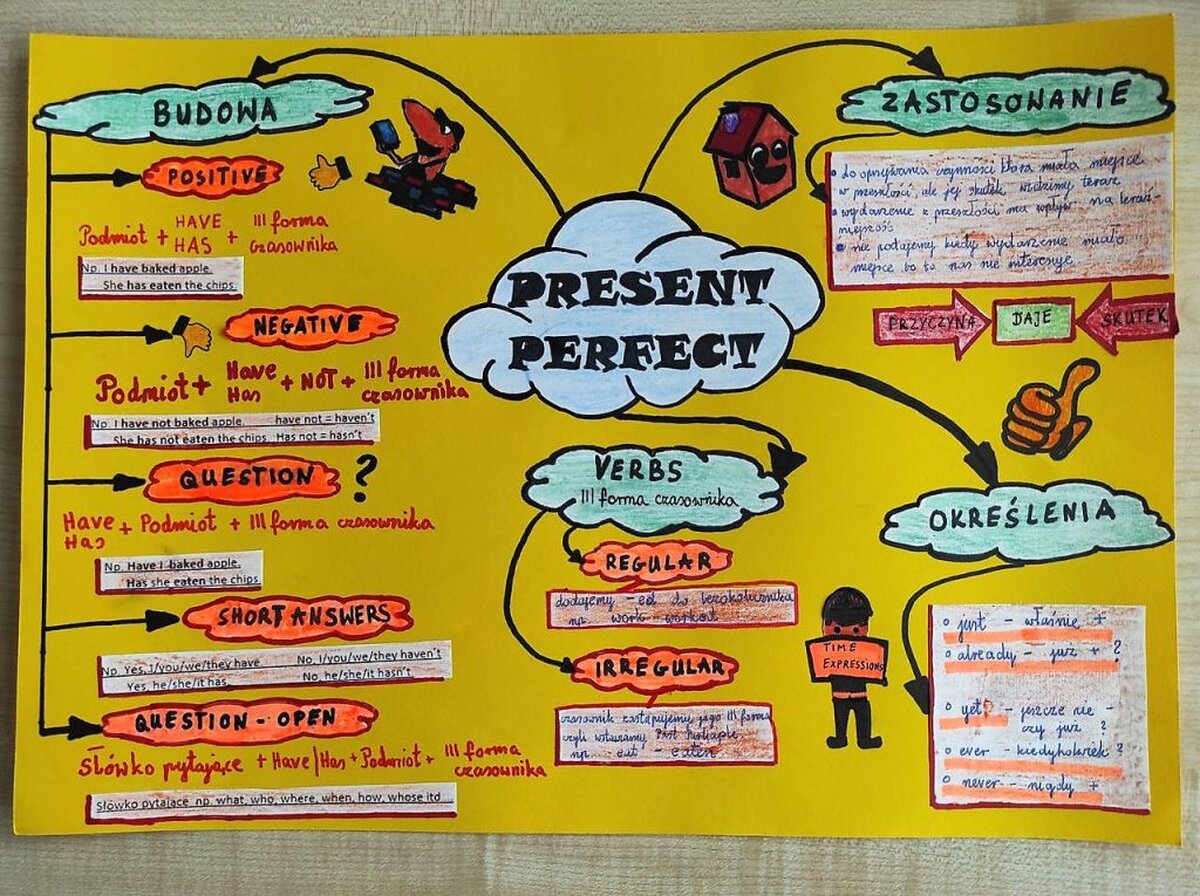 PRESENT
PERFECT
BUDOWA
POSITIVE
Podmiot + HAVE + III forma
HAS czasownika
Np. I have baked apple.
She has eaten the chips.
NEGATIVE
Podmiot + Have + NOT + III forma
Has czasownika
Np. I have not baked apple. have not = haven't
She has not eaten the chips. Has not = hasn't
QUESTION ?
Have + Podmiot + III forma czasownika
Has
Np. Have I baked apple.
Has she eaten the chips.
SHORT ANSWERS
Np. Yes, I/you/we/they have No, I/you/we/they haven't
Yes, he/she/it has No, he/she/it hasn't
QUESTION - OPEN
Słówko pytające + Have/Has + Podmiot + III forma
czasownika
Słówko pytające np. what, who, where, when, how, whose itd...
ZASTOSOWANIE
do opisywania czynności która miała miejsce
w przeszłości, ale jej skutek widzimy teraz
wydarzenie z przeszłości ma wpływ na teraź-
niejszość
nie podajemy kiedy wydarzenie miało
miejsce bo to nas nie interesuje
PRZYCZYNA DAJE SKUTEK
VERBS
III forma czasownika
REGULAR
dodajemy -ed do bezokolicznika
np. work - worked
IRREGULAR
czasownik zastępujemy jego III formą
czyli wstawiamy Past Participle
np. eat - eaten
OKREŚLENIA
TIME
EXPRESSIONS
just - właśnie +
already - już + ?
yet - jeszcze nie -
czy już ?
ever - kiedykolwiek ?
never - nigdy +